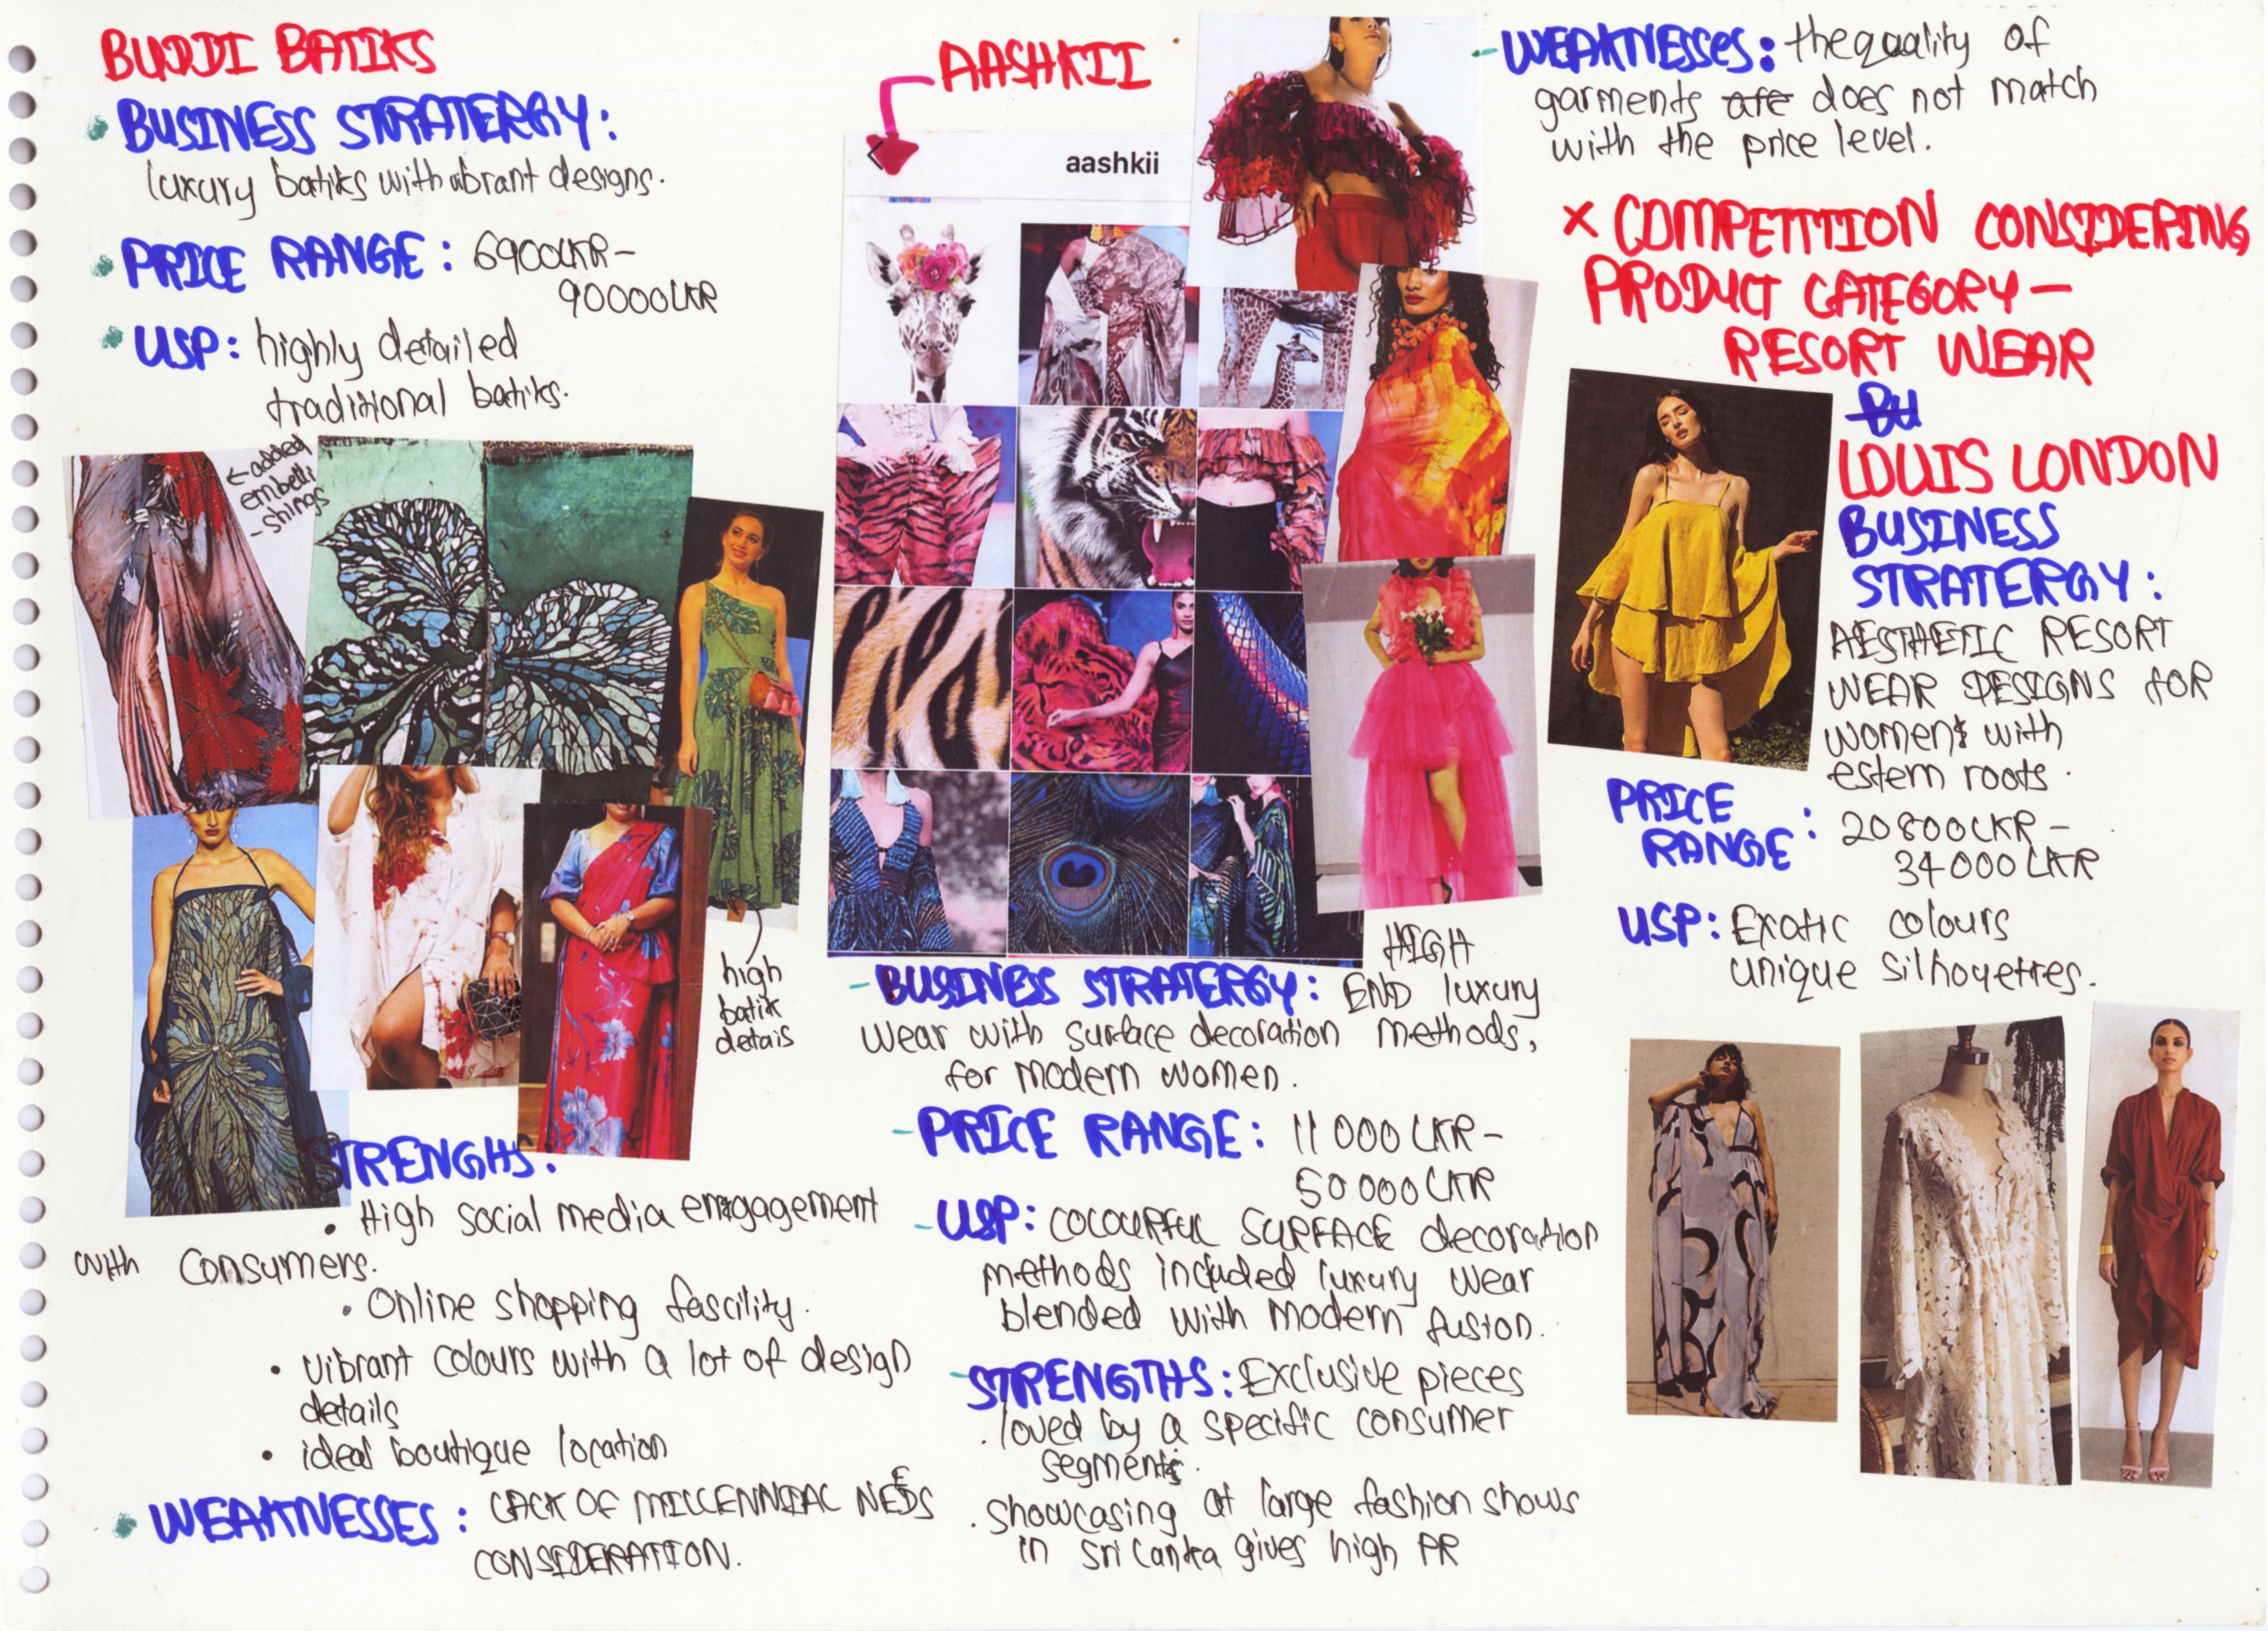 BUDDI BATIKS
BUSINESS STRATERGY:
luxury batiks with vibrant designs.
PRICE RANGE: 6900LKR-
90000LKR
USP: highly detailed
traditional batiks.
← added
embelli
-shings
high
batik
detais
STRENGHS:
• High social media engagement
with consumers.
• Online shopping fascility.
• vibrant colours with a lot of design
details
• ideal boutique location
WEAKNESSES: LACK OF MILLENNIAL NEEDS
CONSIDERATION.
AASHKII
aashkii
- BUSINESS STRATERGY: HIGH
END luxury
wear with surface decoration methods,
for modern women.
- PRICE RANGE: 11 000 LKR-
50 000 LKR
- USP: COLOURFUL SURFACE decoration
methods included luxury wear
blended with modern fusion.
- STRENGTHS: Exclusive pieces
. loved by a specific consumer
segment.
. showcasing at large fashion shows
in sri Lanka gives high PR
- WEAKNESSES: the quality of
garments are does not match
with the price level.
x COMPETITION CONSIDERING
PRODUCT CATEGORY-
RESORT WEAR
BU
LOUIS LONDON
BUSINESS
STRATERGY:
AESTHETIC RESORT
WEAR DESIGNS FOR
women with
estern roots.
PRICE
RANGE: 20800LKR-
34000 LKR
USP: Exotic colours
unique silhouettes.